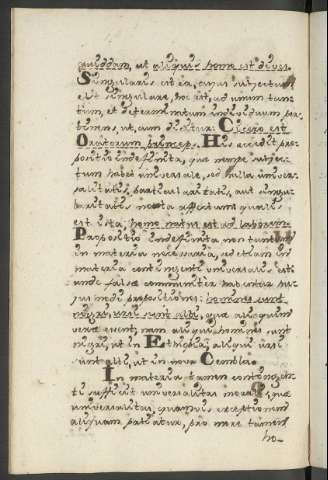 quoddam, ut aliquis homo est dives.
Singularis est ea, cujus subjectum
est singulare, hoc est, ad unum tan-
tum, et determinatum individuum per-
tinens, ut, cum dicitur: Cicero est
Oratorum princeps. His accedit pro-
positio indefinita, quæ nempe subjec-
tum habet universale, sed nulla univer-
salitatis, particularitatis, aut singu-
laritatis nota affectum qualis
est ista, homo natus est ad laborem.
Propositio Indefinita non tantum
in materia necessaria, sed etiam in
materia contingenti universalis est:
unde falsæ communiter habentur hu-
jus modi propositiones: homines sunt
nigri, ursi sunt albi, quæ aliquin
veræ essent, nam aliqui homines sunt
nigri, ut in Ethiopia, aliqui ursi
sunt albi, ut in nova Zemblia.
In materia tamen contingen-
ti sufficit universalitas moralis, quæ
universalitas, quamvis exceptionem
aliquam patiatur, pro mere tamen
ho-